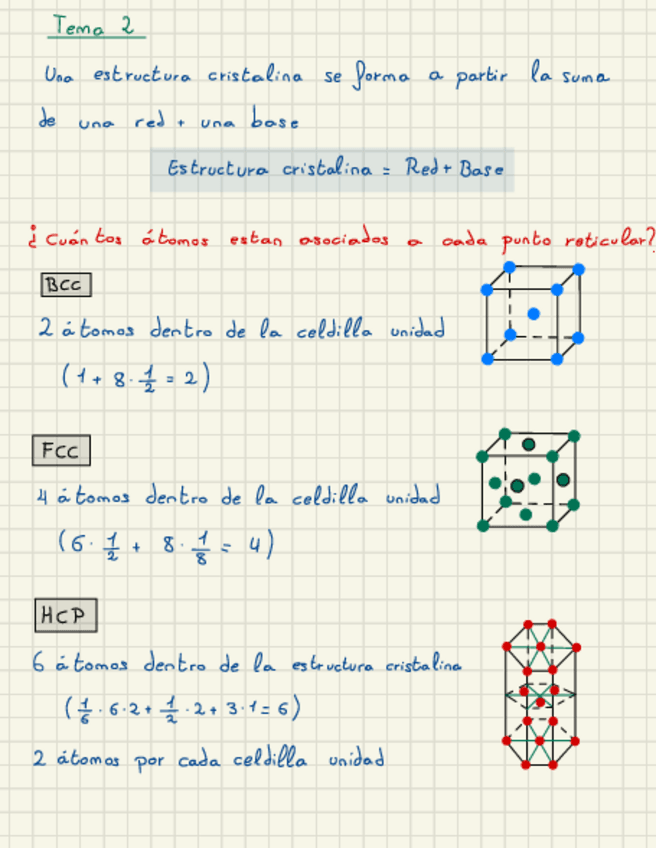 Tema 2
Una estructura cristalina se forma a partir la suma
de una red + una base
Estructura cristalina = Red + Base
¿Cuántos átomos estan asociados a cada punto reticular?
BCC
2 átomos dentro de la celdilla unidad
(1 + 8 · 1/2 = 2)
FCC
4 átomos dentro de la celdilla unidad
(6 · 1/2 + 8 · 1/8 = 4)
HCP
6 átomos dentro de la estructura cristalina
(1/6 · 6 · 2 + 1/2 · 2 + 3 · 1 = 6)
2 átomos por cada celdilla unidad